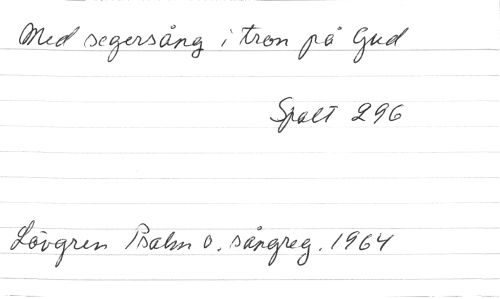 Med segersång i tron på Gud
Spalt 296
Lövgren Psalm o. sångreg. 1964